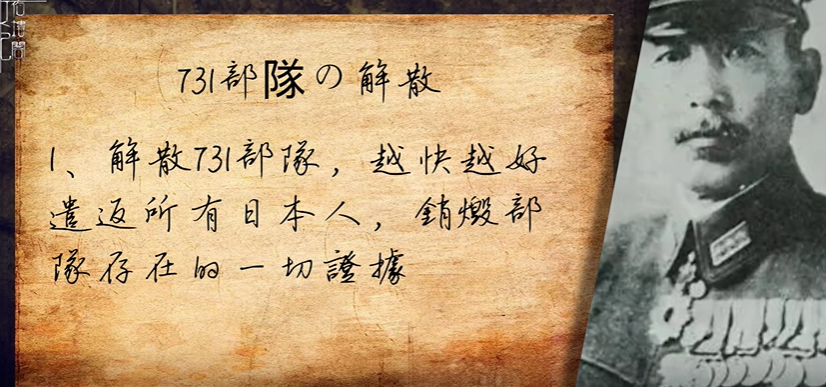 731部隊の解散
1、解散731部隊，越快越好
遣返所有日本人，銷燬部
隊存在的一切證據